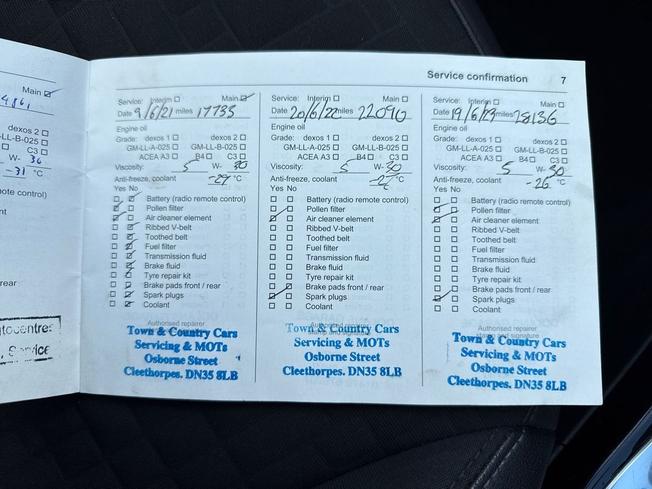 Main ☑
4861
dexos 2 ☐
-LL-B-025 ☐
C3 ☐
W- 30
-31 °C
ote control)
nt
rear
tocentres
Service
Service confirmation 7
Service: Interim ☐ Main ☑
Date 9/6/21 miles 17735
Engine oil
Grade: dexos 1 ☐ dexos 2 ☐
GM-LL-A-025 ☐ GM-LL-B-025 ☐
ACEA A3 ☐ B4 ☐ C3 ☐
Viscosity: 5 W- 30
Anti-freeze, coolant -29 °C
Yes No
Battery (radio remote control)
Pollen filter
Air cleaner element
Ribbed V-belt
Toothed belt
Fuel filter
Transmission fluid
Brake fluid
Tyre repair kit
Brake pads front / rear
Spark plugs
Coolant
Authorised repairer
Town & Country Cars
Servicing & MOTs
Osborne Street
Cleethorpes. DN35 8LB
Service: Interim ☐ Main ☐
Date 20/6/22 miles 22090
Engine oil
Grade: dexos 1 ☐ dexos 2 ☐
GM-LL-A-025 ☐ GM-LL-B-025 ☐
ACEA A3 ☐ B4 ☐ C3 ☐
Viscosity: 5 W- 30
Anti-freeze, coolant -27 °C
Yes No
Battery (radio remote control)
Pollen filter
Air cleaner element
Ribbed V-belt
Toothed belt
Fuel filter
Transmission fluid
Brake fluid
Tyre repair kit
Brake pads front / rear
Spark plugs
Coolant
Town & Country Cars
Servicing & MOTs
Osborne Street
Cleethorpes. DN35 8LB
Service: Interim ☐ Main ☐
Date 19/6/23 miles 28136
Engine oil
Grade: dexos 1 ☐ dexos 2 ☐
GM-LL-A-025 ☐ GM-LL-B-025 ☐
ACEA A3 ☐ B4 ☐ C3 ☐
Viscosity: 5 W- 30
Anti-freeze, coolant -26 °C
Yes No
Battery (radio remote control)
Pollen filter
Air cleaner element
Ribbed V-belt
Toothed belt
Fuel filter
Transmission fluid
Brake fluid
Tyre repair kit
Brake pads front / rear
Spark plugs
Coolant
Authorised repairer
Town & Country Cars
Servicing & MOTs
Osborne Street
Cleethorpes. DN35 8LB